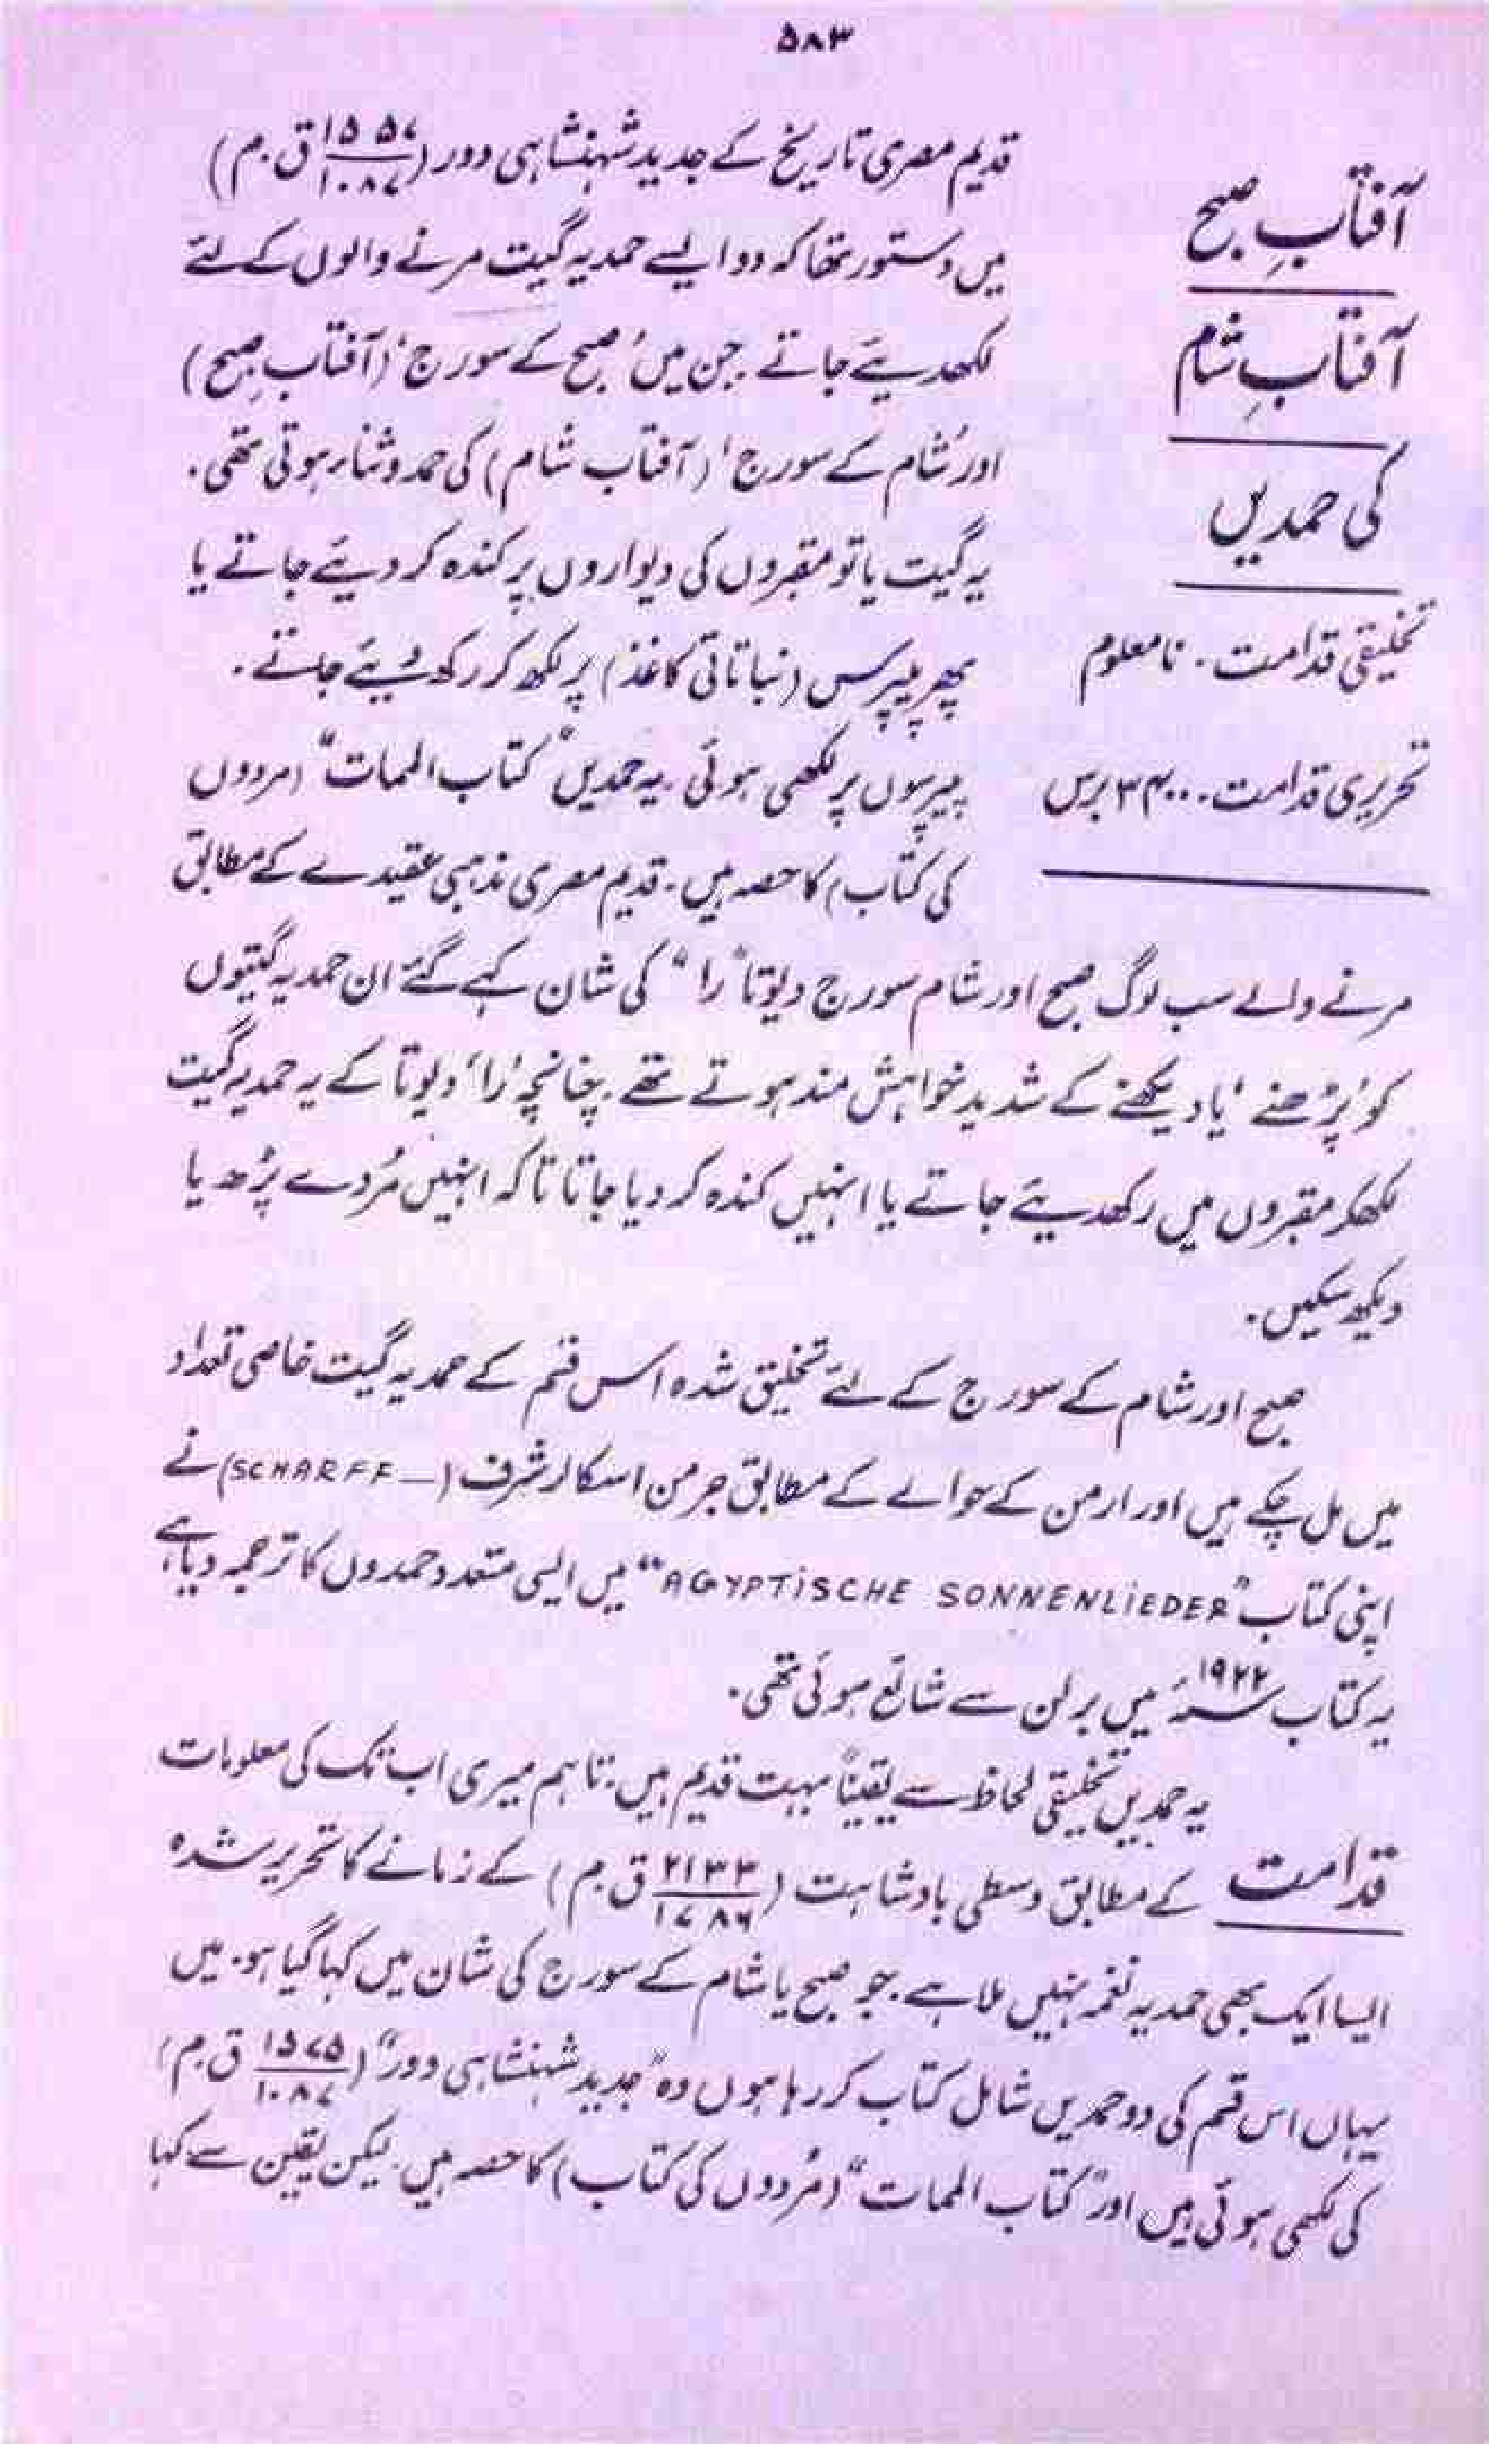 ۵۸۳
آفتابِ صبح
آفتابِ شام
کی حمدیں
تخلیقی قدامت ۔ نامعلوم
تحریری قدامت ۔ ۳۴۰۰ برس
قدیم مصری تاریخ کے جدید شہنشاہی دور (
۱۰۸۷ ق ۔ م)
میں دستور تھا کہ دو ایسے حمدیہ گیت مرنے والوں کے لئے
لکھدیئے جاتے جن میں ’صبح کے سورج‘ (آفتابِ صبح)
اور ’شام کے سورج‘ (آفتاب شام) کی حمد و ثناء ہوتی تھی ۔
یہ گیت یا تو مقبروں کی دیواروں پر کندہ کر دیئے جاتے یا
پھر پیپرس (نباتاتی کاغذ) پر لکھ کر رکھ دیئے جاتے ۔
پیپرسوں پر لکھی ہوئی یہ حمدیں "کتاب الممات" (مردوں
کی کتاب) کا حصہ ہیں ۔ قدیم مصری مذہبی عقیدے کے مطابق
مرنے والے سب لوگ صبح اور شام سورج دیوتا "را" کی شان کہے گئے ان حمدیہ گیتوں
کو ’پڑھنے‘ یا دیکھنے کے شدید خواہش مند ہوتے تھے ۔ چنانچہ ’را‘ دیوتا کے یہ حمدیہ گیت
لکھکر مقبروں میں رکھدیئے جاتے یا انہیں کندہ کر دیا جاتا تاکہ انہیں مُردے پڑھ یا
دیکھ سکیں ۔
صبح اور شام کے سورج کے لئے تخلیق شدہ اس قسم کے حمدیہ گیت خاصی تعداد
میں مل چکے ہیں اور ارمن کے حوالے کے مطابق جرمن اسکالر شرف (—SCHARFF) نے
اپنی کتاب "AGYPTiSCHE SONNENLiEDER" میں ایسی متعدد حمدوں کا ترجمہ دیا ہے
یہ کتاب ۱۹۲۲ء میں برلن سے شائع ہوئی تھی ۔
یہ حمدیں تخلیقی لحاظ سے یقیناً بہت قدیم ہیں ۔ تاہم میری اب تک کی معلومات
قدامت کے مطابق وسطی بادشاہت (۲۱۳۳/۱۷۸۶ ق ۔ م) کے زمانے کا تحریر شدہ
ایسا ایک بھی حمدیہ نغمہ نہیں ملا ہے ۔ جو صبح یا شام کے سورج کی شان میں کہا گیا ہو ۔ میں
یہاں اس قسم کی دو حمدیں شامل کتاب کر رہا ہوں وہ "جدید شہنشاہی دور" (۱۵۷۵/۱۰۸۷ ق ۔ م)
کی لکھی ہوئی ہیں اور "کتاب الممات" (مُردوں کی کتاب) کا حصہ ہیں ۔ لیکن یقین سے کہا